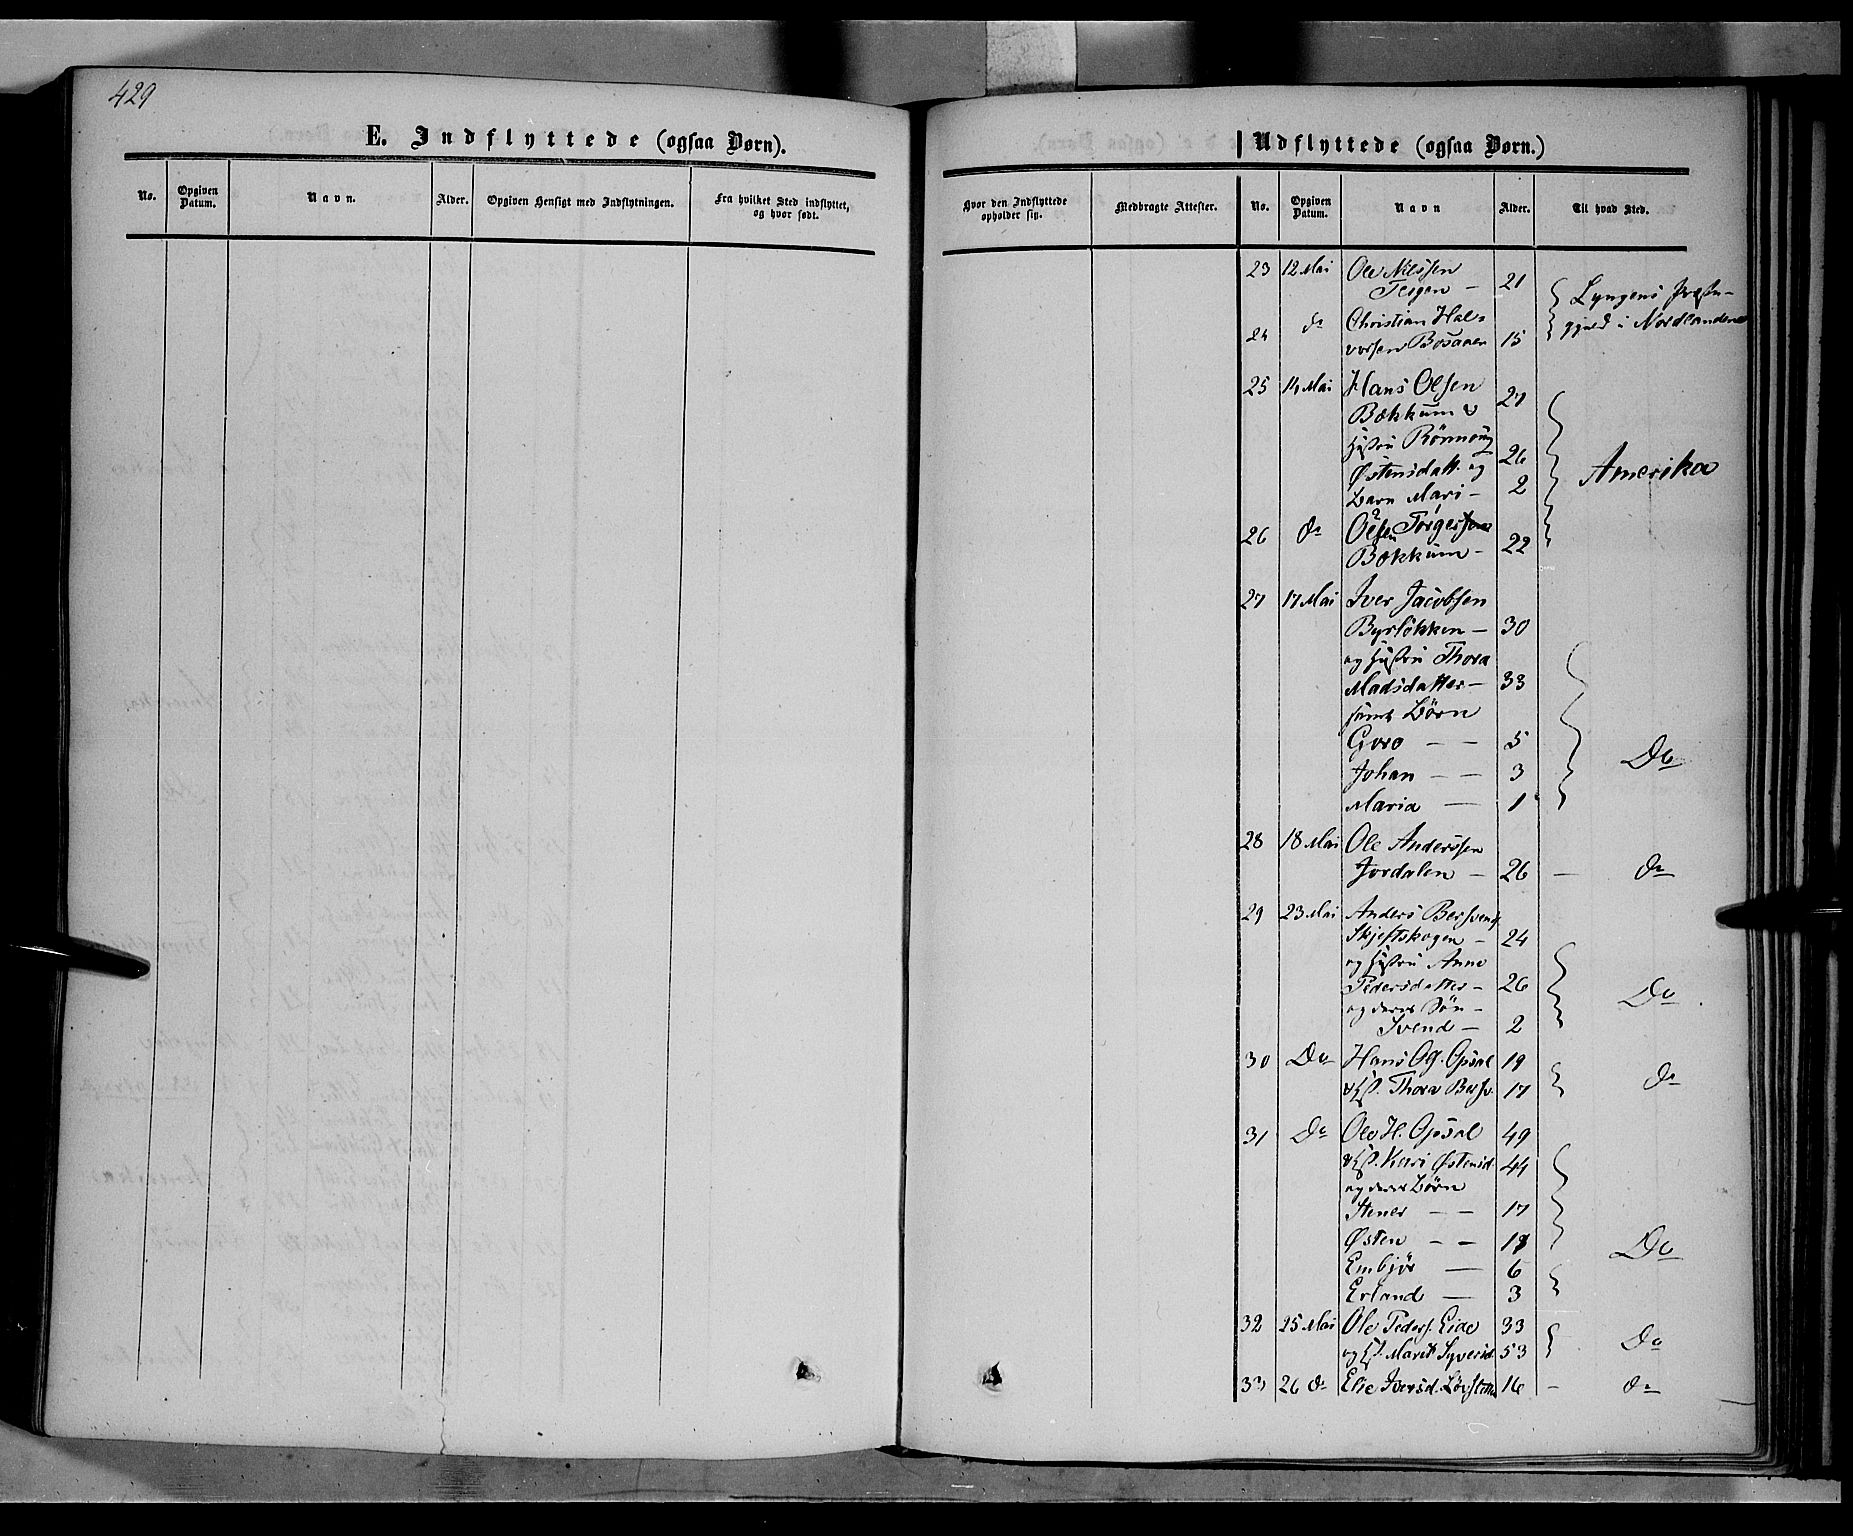 429
E. Indflyttede (ogsaa Børn).
No. Opgiven Datum. Navn. Alder. Opgiven Hensigt med Indflytningen. Fra hvilket Sted indflyttet, og hvor født.
Udflyttede (ogsaa Børn.)
Hvor den Indflyttede opholder sig. Medbragte Attester. No. Opgiven Datum. Navn Alder. Til hvad Sted.
23 12 Mai Ole Nilssen
Tesgen — 21 Lyngens Præste-
24 do Christian Hal- gjeld i Nordlandene
vorsen Bosaaen 15
25 14 Mai Hans Olsen 27
Bækkum &
Hustru Rønnoug
Østensdatt. og 26 Amerika
Barn Mari — 2
26 do Olsen Torgersen
Bækkum — 22
27 17 Mai Iver Jacobsen
Byrløkken — 30
og Hustru Thora
Madsdatter — 33
samt Børn
Goro — — 5
Johan — — 3 Do
Maria — 1
28 18 Mai Ole Anderssen
Jordalen — 26 — do
29 23 Mai Anders Bersvends
Skjeftskogen — 24
og Hustru Anne
Pedersdatter — 26 Do
og deres Søn —
Svend — 2
30 Do Hans Ol. Opsal 19
& H. Thora Bersv. 17 do
31 Do Ole H. Opsal 49
& H. Kari Østensd. 44
og deres Børn
Stener — — 17
Østen — —
Embjør — 6 Do
Erland — 3
32 25 Mai Ole Peders. Eide 33
og H. Marit Syversd. 53 Do
33 26 do Elie Iversd. 16 — do